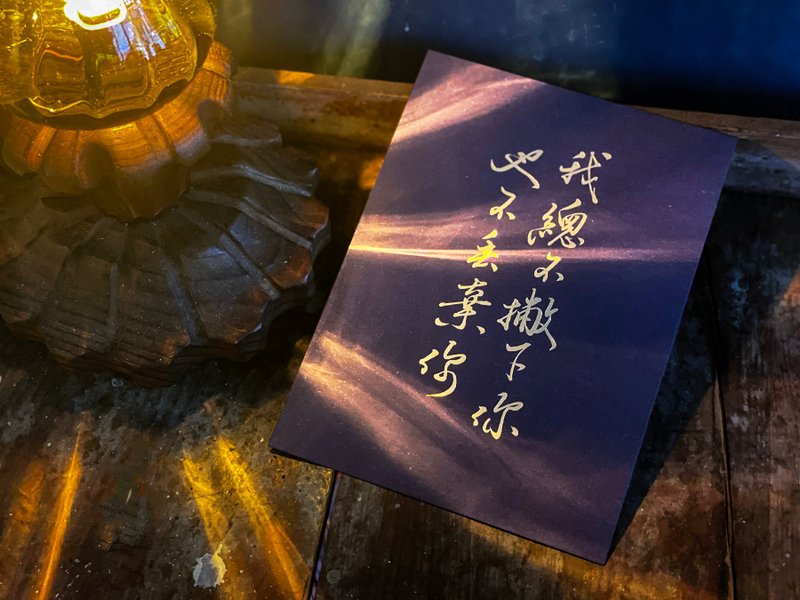 我總不撇下你
也不丟棄你